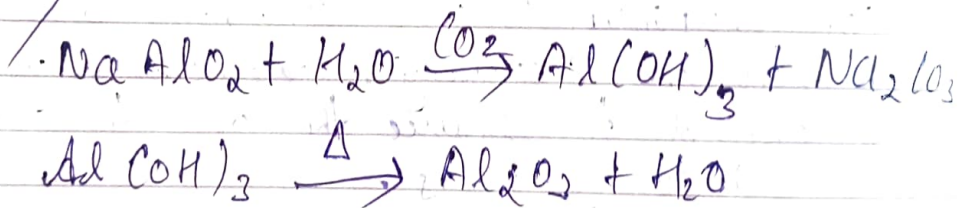 /. NaAlO₂ + H₂O —CO₂→ Al(OH)₃ + Na₂CO₃
Al(OH)₃ —Δ→ Al₂O₃ + H₂O